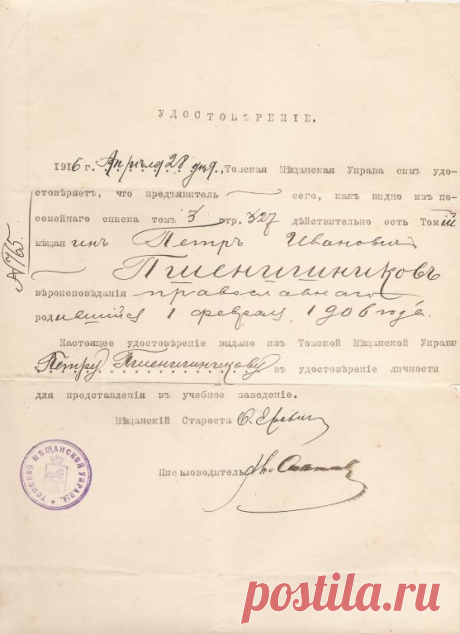 УДОСТОВѢРЕНІЕ.
1916 г. Апрѣля 28 дня, Томская Мѣщанская Управа симъ удо-
стовѣряетъ, что предъявитель сего, какъ видно изъ по-
семейнаго списка томъ 3 стр. 327 дѣйствительно есть Томскій
мѣщанинъ Петръ Ивановичъ
Пшеничниковъ
вѣроисповѣданія православнаго
родившійся 1 февраля 1906 года.
Настоящее удостовѣреніе выдано изъ Томской Мѣщанской Управы
Петру Пшеничникову въ удостовѣреніе личности
для представленія въ учебное заведеніе.
Мѣщанскій Староста
Письмоводитель
№ 765
ТОМСКОЙ МѢЩАНСКОЙ УПРАВЫ
postila.ru